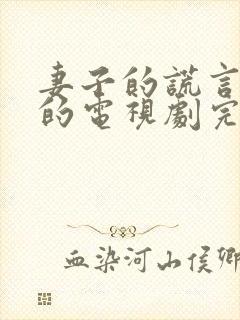 妻子的謊言
的電視劇完
血染河山侯卿